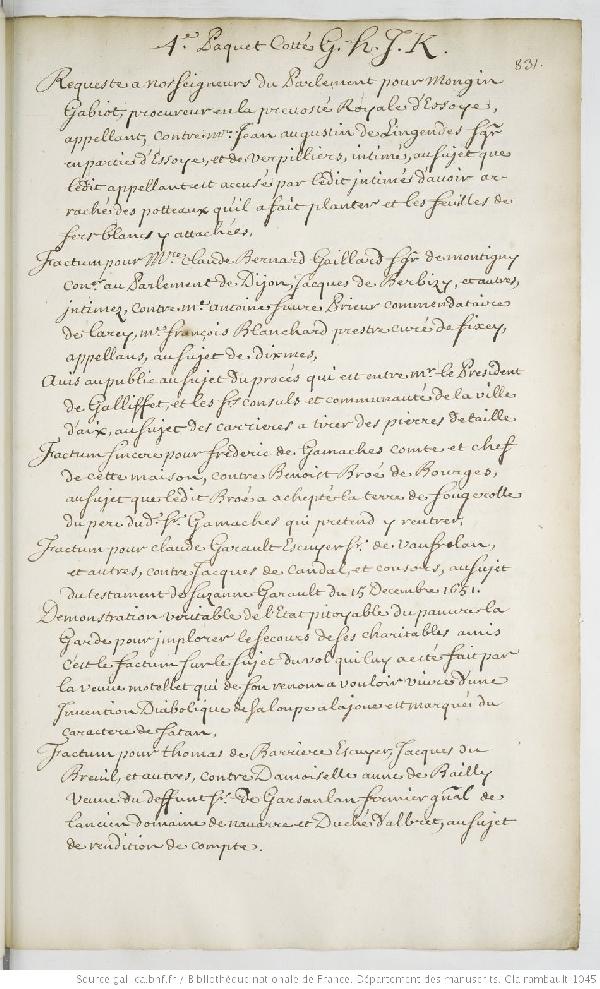 4.e Paquet Cotté G. h. J. K.
831.
Requeste a nosseigneurs du Parlement pour Mongin
Gabiot, procureur en la prevosté Royale d'Essoye,
appellant, contre mre. Jean augustin de Lingendes sgr.
en partie d'Essoye, et de verpilliers, intimé, au sujet que
ledit appellant est accusé par ledit jntimé d'avoir ar-
raché des potteaux quil a fait planter et les feuilles de
fers blancs y attachées.
Factum pour Mre. Claude Bernard Gaillard sgr. de montigny
coner. au Parlement de Dijon, Jacques de Berbizy, et autres,
jntimez, contre mre. antoine faure Prieur commendataire
de larey, mre. françois Blanchard prestre curé de fixey,
appellans, au sujet de dixmes,
Avis au public au sujet du procés qui est entre mr. le President
de Galliffet, et les srs consuls et communauté de la ville
d'aix, au sujet des carrieres a tirer des pierres de taille
Factum sincere pour frederic de Gamaches comte et chef
de cette maison, contre Benoist Broé de Bourges,
au sujet que ledit Broé a achepté la terre de fougerolle
du pere dud. sr. Gamaches qui pretend y rentrer,
Factum pour claude Garault Escuyer sr. de vaufrelan,
et autres, contre Jacques de Candal, et consors, au sujet
du testament de suzanne Garault du 15 Decembre 1651.
Demonstration veritable de l'Etat pitoyable du pauvre la
Garde pour jmplorer le secours de ses charitables amis
c'est le factum sur le sujet du vol qui luy a esté fait par
la veuve motollet qui de son renom a vouloir vivre d'une
Jnvention Diabolique de sa loupe a la joue est marqués du
caractere de satan,
Factum pour thomas de Barriere Escuyer, Jacques du
Breuil, et autres, contre Damoiselle anne de Bailly
veuve du deffunt sr. de Garsanlan fermier gñal de
lancien domaine de navarre et Duché d'albret, au sujet
de rendition de compte.
Source gallica.bnf.fr / Bibliothèque nationale de France. Département des manuscrits. Clairambault 1045